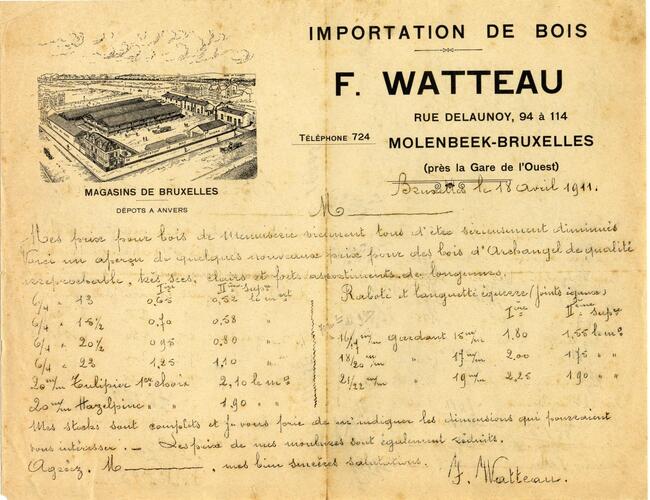 IMPORTATION DE BOIS
F. WATTEAU
RUE DELAUNOY, 94 à 114
TÉLÉPHONE 724
MOLENBEEK-BRUXELLES
(près la Gare de l'Ouest)
MAGASINS DE BRUXELLES
DÉPOTS A ANVERS
Bruxelles le 18 avril 1911.
M
Mes prix pour bois de Menuiserie viennent tous d'être sérieusement diminués
Voici un aperçu de quelques nouveaux prix pour des bois d'Archangel de qualité
irréprochable, très secs, clairs et forts assortiments de longueurs.
Ière IIème supre
6/4 " 13 0,65 0,52 le mct
6/4 " 15½ 0,70 0,58 "
6/4 " 20½ 0,95 0,80 "
6/4 " 23 1,25 1,10 "
20 m/m Tulipier 1er choix 2,10 le m2
20 m/m Hazelpine " " 1,90 " "
Raboté et languetté équerre (joints égaux)
Ière IIème supre
16/17 m/m gardant 15 m/m 1,80 1,55 le m2
18/20 m/m " 17 m/m 2,00 1,75 " "
21/22 m/m " 19 m/m 2,25 1,90 " "
Mes stocks sont complets et je vous prie de m'indiquer les dimensions qui pourraient
vous intéresser. — Les prix de mes moulures sont également réduits.
Agréez, M , mes bien sincères salutations.
F. Watteau.